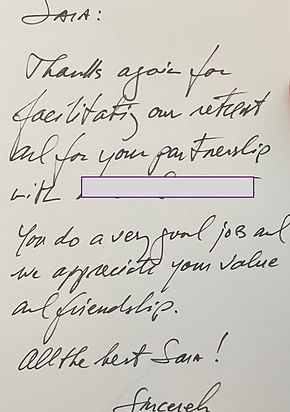 SAIA:
Thanks again for
facilitating our retreat
and for your partnership
with
You do a very good job and
we appreciate your value
and friendship.
All the best SAIA!
Sincerely